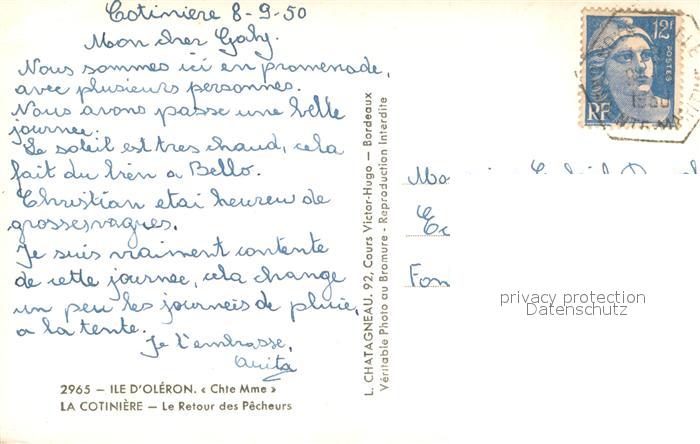 Cotinière 8-9-50
Mon cher Gaby.
Nous sommes ici en promenade,
avec plusieurs personnes.
Nous avons passe une belle
journee.
Le soleil est tres chaud, cela
fait du bien a Bello.
Christian etai heureu de
grosses vagues.
Je suis vraiment contente
de cette journee, cela change
un peu les journeis de pluie,
a la tente.
Je t'embrasse,
Anita
2965 — ILE D'OLÉRON. « Chte Mme »
LA COTINIÈRE — Le Retour des Pêcheurs
L. CHATAGNEAU. 92, Cours Victor-Hugo — Bordeaux
Véritable Photo au Bromure - Reproduction Interdite
12F
POSTES
RF
1950
Fon
privacy protection
Datenschutz